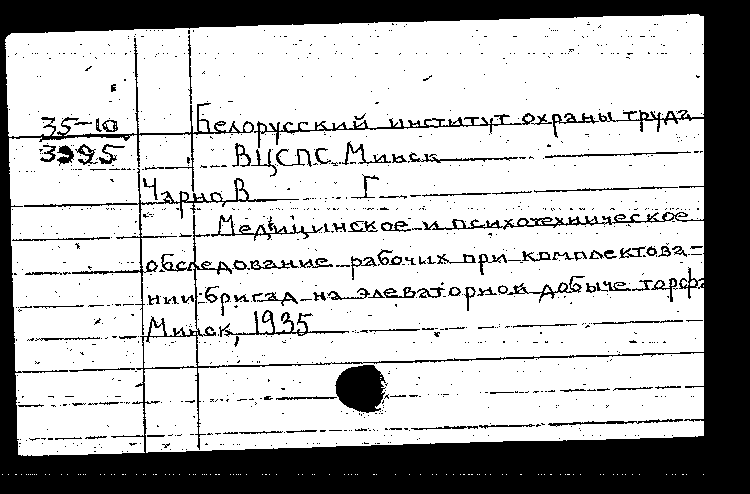 35-10
3995
Белорусский институт охраны труда
ВЦСПС Минск
Чарно, В Г
Медицинское и психотехническое
обследование рабочих при комплектова-
нии бригад на элеваторной добыче торфа
Минск, 1935